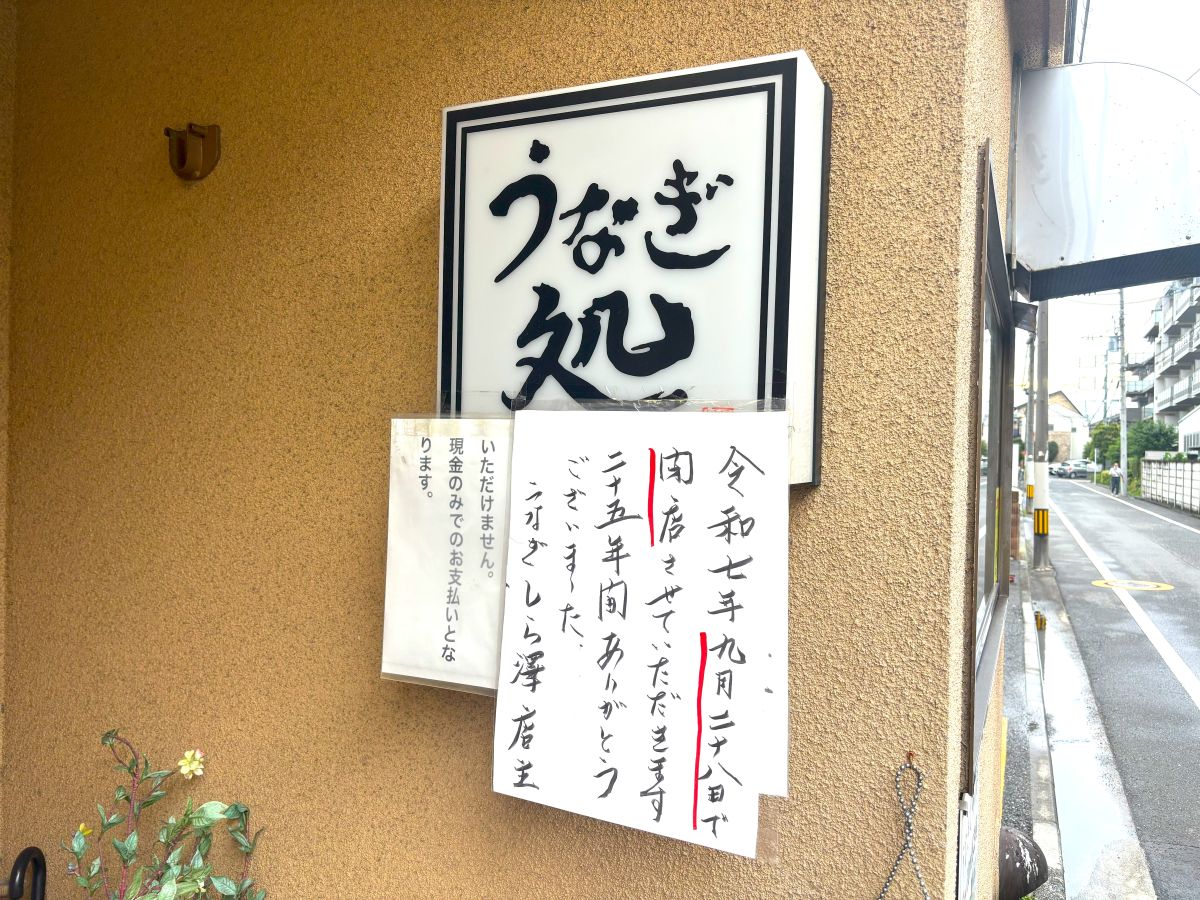 うなぎ
処
令和七年九月二十八日で
閉店させていただきます
二十五年間ありがとう
ございました、
うなぎしら澤店主
いただけません。
現金のみでのお支払いとな
ります。